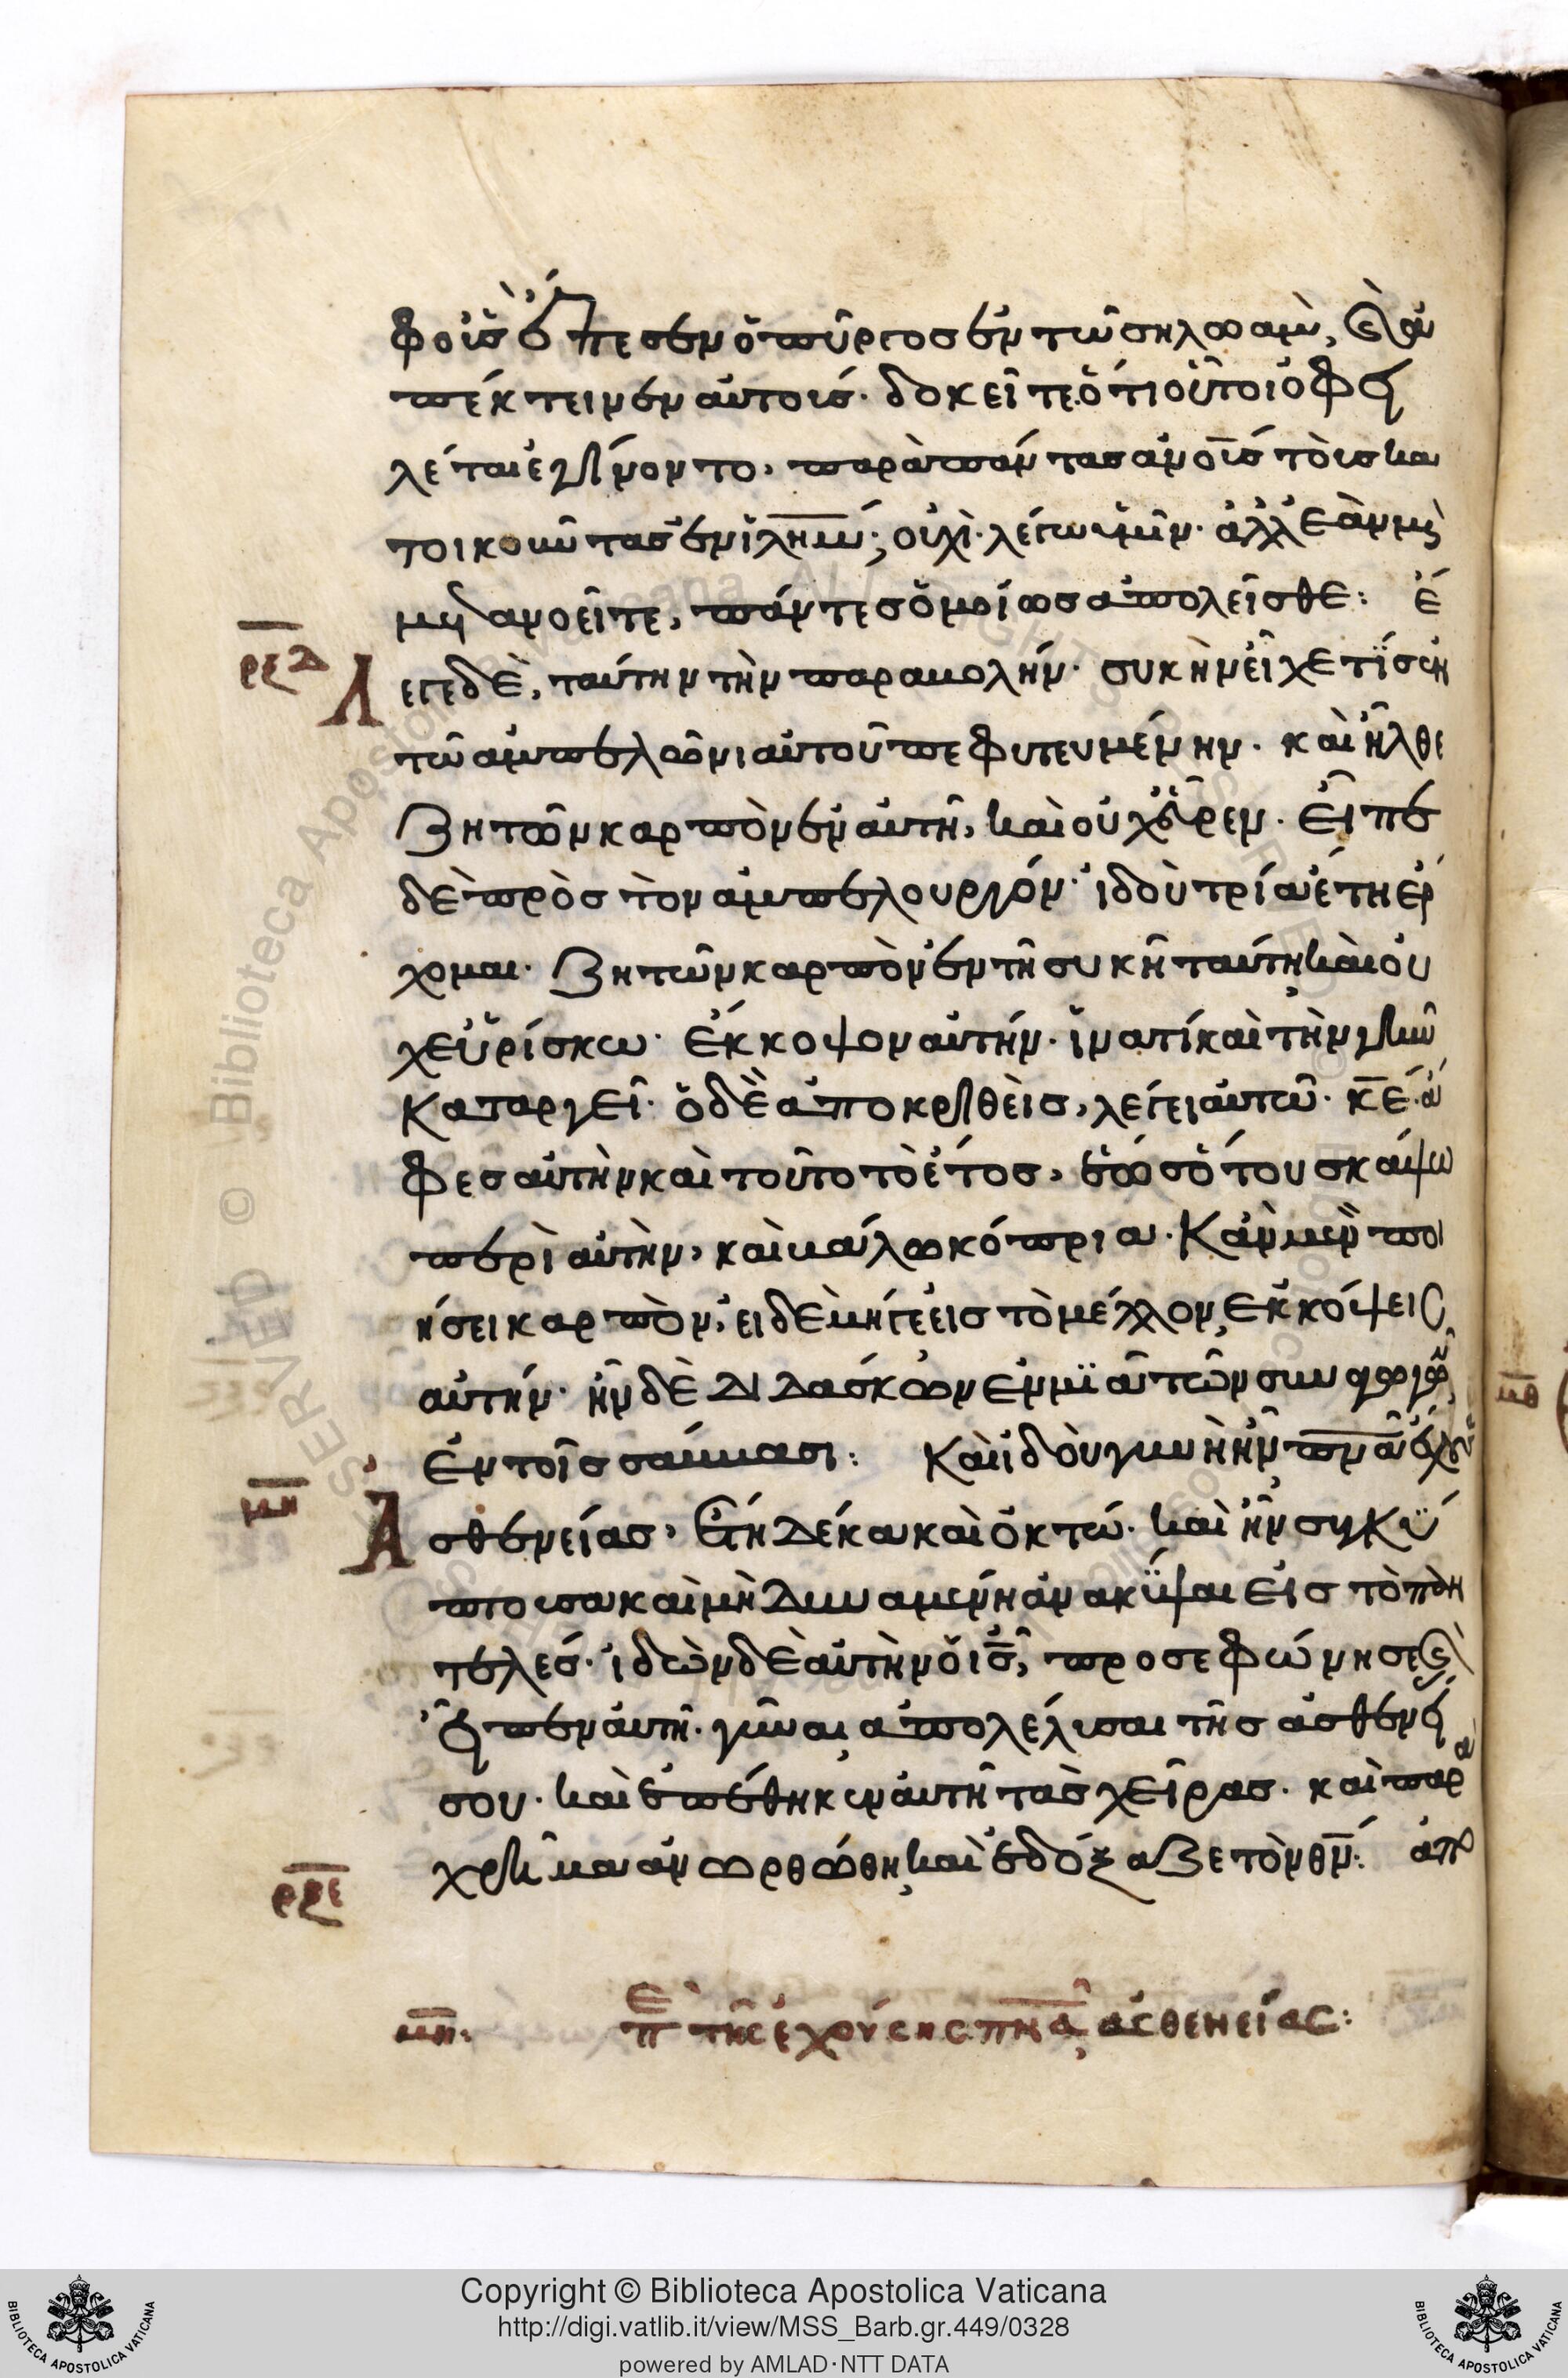 φ οὓς ἔπεσεν ὁ πύργος ἐν τῶ σηλωὰμ, καὶ ἀ
πέκτεινεν αὐτούς· δοκεῖτε ὅτι οὗτοι ὀφει
λέται ἐγένοντο, παρὰ πάντας ἀνο̅υ̅ς τοὺς κα
τοικοῦντας ἐν ἰλη̅μ̅; οὐχὶ· λέγω ὑμῖν· ἀλλ' ἐὰν μὴ
μετανοεῖτε, πάντες ὁμοίως ἀπολεῖσθε: ἔ
ρξδ
λεγε δὲ, ταύτην τὴν παραβολήν· συκὴν εἶχε τίς ἐν
τῶ ἀμπελῶνι αὐτοῦ πεφυτευμένην· καὶ ἦλθε
ζητῶν καρπὸν ἐν αὐτῆ, καὶ οὐχ εὗρεν· εἶπε
δὲ πρὸς τὸν ἀμπελουργόν· ἰδοὺ τρία ἔτη ἔρ
χομαι· ζητῶν καρπὸν ἐν τῆ συκῆ ταύτη, καὶ οὐ
χ εὑρίσκω· ἔκκοψον αὐτήν· ἵνα τί καὶ τὴν γῆν
καταργεῖ· ὁ δὲ ἀποκριθεὶς, λέγει αὐτῶ· κ̅ε̅· ἄ
φες αὐτὴν καὶ τοῦτο τὸ ἔτος, ἕως ὅτου σκάψω
περὶ αὐτὴν, καὶ βάλω κόπρια· κἂν μὲν ποι
ήσει καρπὸν, εἰ δὲ μήγε, εἰς τὸ μέλλον ἐκκόψεις
αὐτήν· ἦν δὲ διδάσκων ἐν μιᾶ τῶν συναγωγῶν,
ἐν τοῖς σάββασι: Καὶ ἰδοὺ γυνὴ ἦν π̅ν̅α̅ ἔχουσα
μη
ἀσθενείας, ἔτη δέκα καὶ ὀκτώ· καὶ ἦν συγκύ
πτουσα καὶ μὴ δυναμένη ἀνακύψαι εἰς τὸ παν
τελές· ἰδὼν δὲ αὐτὴν ὁ ι̅ς̅, προσεφώνησε καὶ
εἶπεν αὐτῆ· γύναι, ἀπολέλυσαι τῆς ἀσθενείας
σου· καὶ ἐπέθηκεν αὐτῆ τὰς χεῖρας· καὶ παρα
χρῆμα ἀνωρθώθη, καὶ ἐδόξαζε τὸν θ̅ν̅: ἀπο
ρξε
μη: Περὶ τῆς ἐχούσης π̅ν̅α̅ ἀσθενείας:
Copyright © Biblioteca Apostolica Vaticana
http://digi.vatlib.it/view/MSS_Barb.gr.449/0328
powered by AMLAD·NTT DATA
BIBLIOTECA APOSTOLICA VATICANA
BIBLIOTECA APOSTOLICA VATICANA